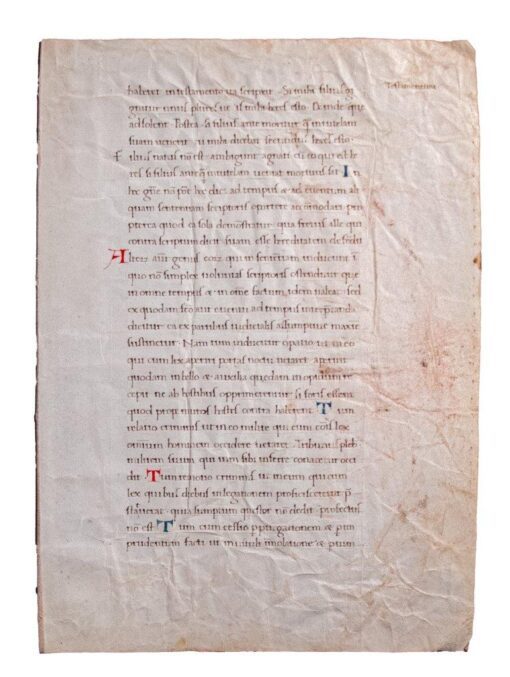 haberet in testamento ita scripsit. Si mihi filius gi
gnitur unus pluresve is mihi heres esto. Deinde que
adsolent. Postea si filius ante moritur q in tutelam
suam venerit tu mihi dicitur secundus heres esto.
filius natus nō est. ambigunt agnati cū eo qui est he
res si filius ante q in tutelam venerit mortuus sit. In
hoc gñe nō pōt hoc dici ad tempus & ad eventum ali
quam sententiam scriptoris oportere accomodari. pro
pterea quod ea sola demonstratur qua fretus ille qui
contra scriptum dicit suam esse hereditatem defendit
Alterū autē genus eorū qui in sententiam inducunt i
quo nō simplex voluntas scriptoris ostenditur que
in omne tempus & in omne factum idem valeat. sed
ex quodam facto aut eventu ad tempus interpretanda
dicitur ea ex partibus iudicialis assumptive maxime
sustinetur. Nam tum inducitur
qui cum lex aperiri portas noctu vetaret. aperuit
quodam in bello & auxilia quedam in opidum re
cepit ne ab hostibus opprimerentur si foris essent
quod prope muros hostes castra haberent. Tum
relatio criminis ut in eo milite qui cum cōis lex
omnium hominem occidere vetaret. tribunum pleb
militem suum qui vim sibi inferre conaretur occi
dit. Tum remotio criminis ut in eo qui cum
lex quibus diebus in legationem proficisceretur p
stituerat. quia sumptum questor nō dedit. profectus
nō est. Tum cum cessio p purgationem & im
prudentiam facti ut in vituli immolatione & p vim
Testamentum